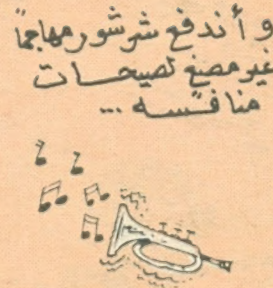 وأندفع شرشور مهاجماً
غير مصغ لصيحات
منافسه ...